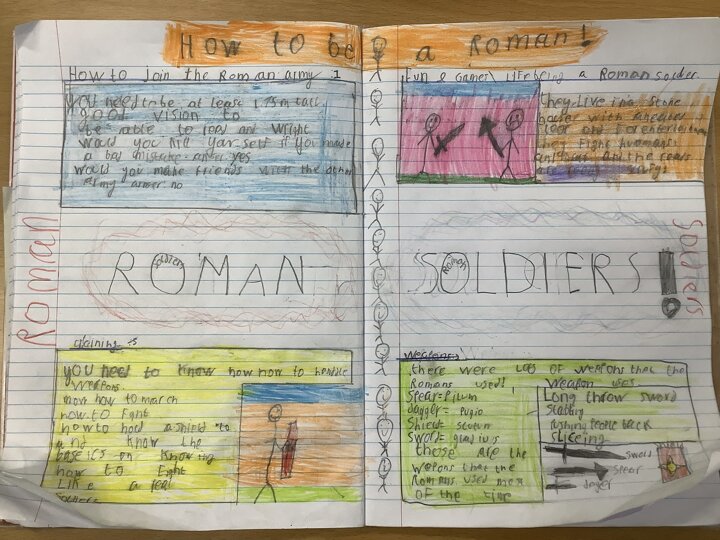 How to be a ROMAN!
How to join the Roman army 1
You need to be at lease 1.75m tall
good vision to
be able to read and wright
would you kill yar self if you made
a bad mistake anser yes
would you make friends with the other
army armer no
Fun & Games life being a Roman solder
they live in a stone
house with
floor and for entertainment
they fight humans
and the roads
are
Roman
ROMAN
Soldiers
SOLDIERS!
Roman
Soldiers
training is
you need to know how now to handle
weapons.
now how to march
now to fight
how to hold a shield to
and know the
baseics on knowing
how to fight
Like a real
Soldiers
weapons
there were lod of weapons that the
Romans used!
Spear=Pilum
daggey= Pugio
Shield= scutum
Sword= gladius
those are the
wepons that the
Rommans used most
of the time
Weapon uses
Long throw sword
Stabbing
Pushing People back
sliceing
Sword
spear
dager